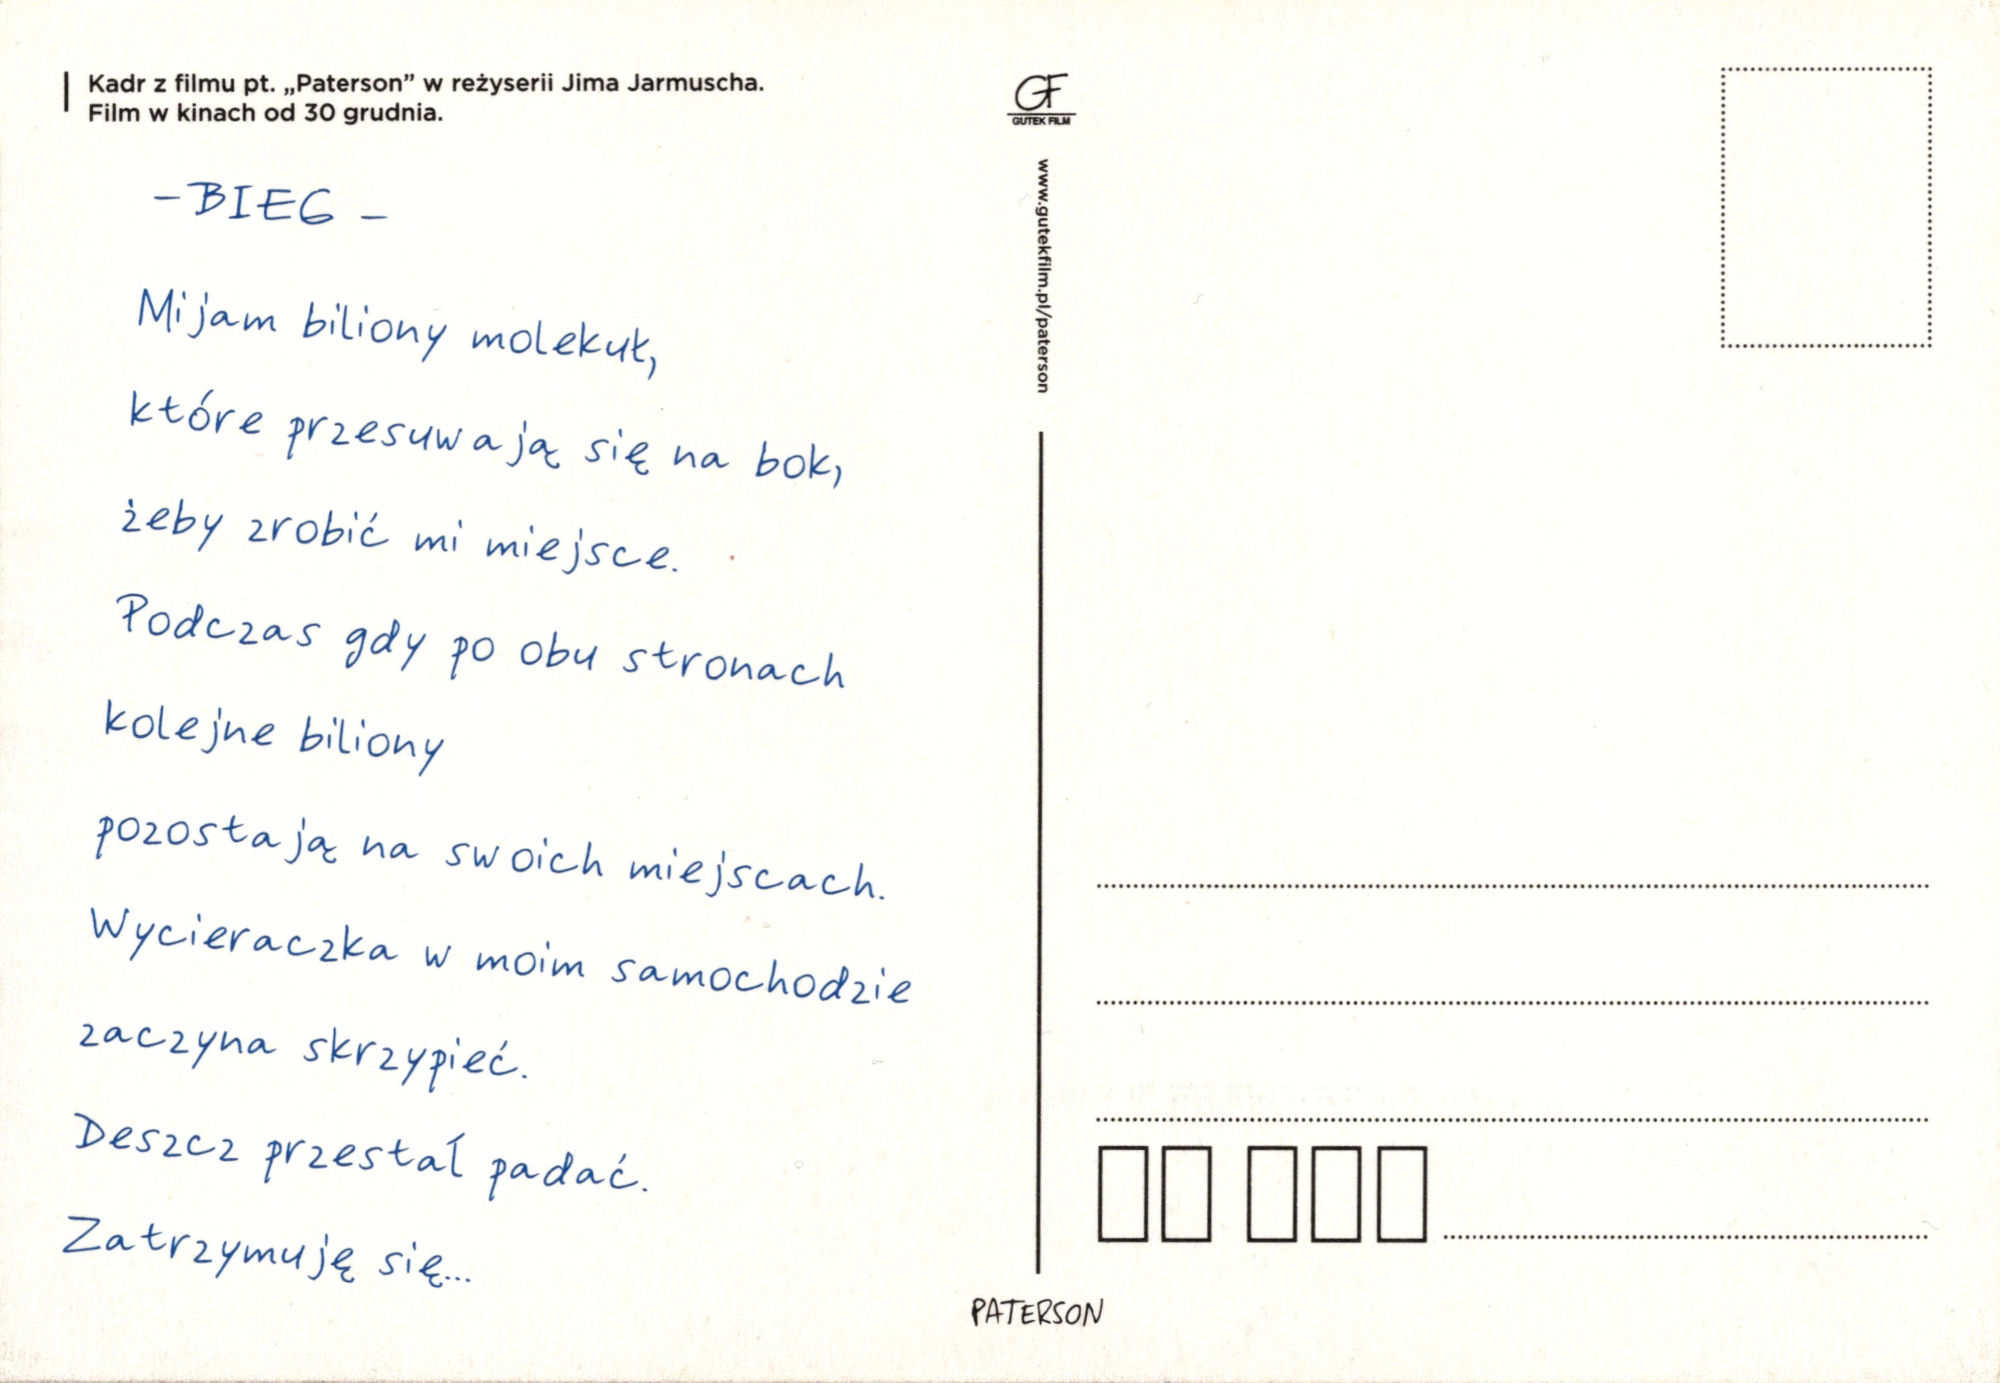 Kadr z filmu pt. „Paterson” w reżyserii Jima Jarmuscha.
Film w kinach od 30 grudnia.
- BIEG -
Mijam biliony molekuł,
które przesuwają się na bok,
żeby zrobić mi miejsce.
Podczas gdy po obu stronach
kolejne biliony
pozostają na swoich miejscach.
Wycieraczka w moim samochodzie
zaczyna skrzypieć.
Deszcz przestał padać.
Zatrzymuję się...
GF
GUTEK FILM
www.gutekfilm.pl/paterson
PATERSON